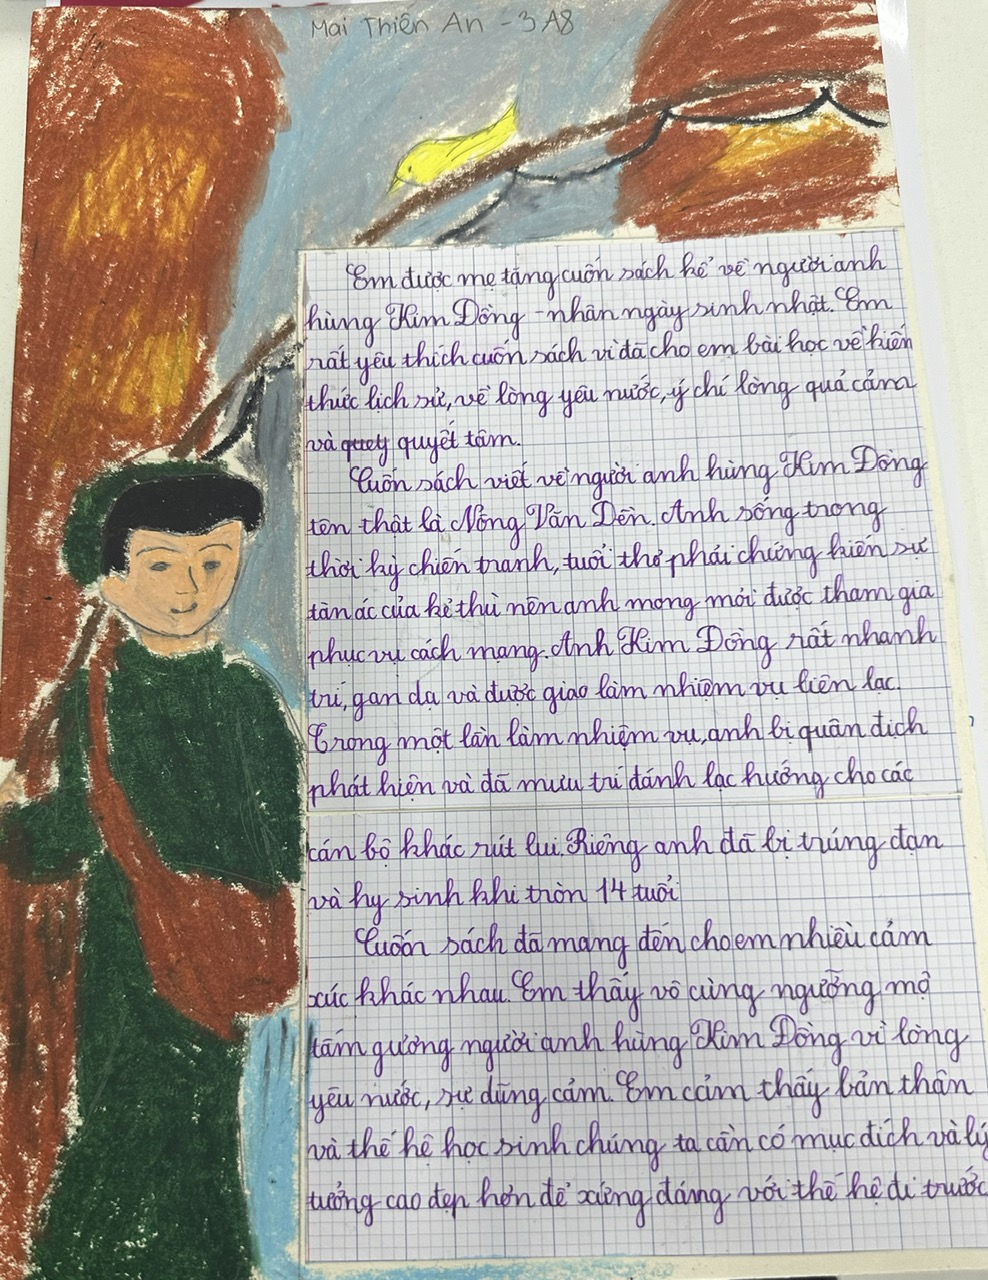 Mai Thiên An - 3A8
Em được mẹ tặng cuốn sách kể về người anh
hùng Kim Đồng - nhân ngày sinh nhật. Em
rất yêu thích cuốn sách vì đã cho em bài học về kiến
thức lịch sử, về lòng yêu nước, ý chí lòng quả cảm
và quety quyết tâm.
Cuốn sách viết về người anh hùng Kim Đồng
tên thật là Nông Văn Dền. Anh sống trong
thời kỳ chiến tranh, tuổi thơ phải chứng kiến sự
tàn ác của kẻ thù nên anh mong mỏi được tham gia
phục vụ cách mạng. Anh Kim Đồng rất nhanh
trí, gan dạ và được giao làm nhiệm vụ liên lạc.
Trong một lần làm nhiệm vụ, anh bị quân địch
phát hiện và đã mưu trí đánh lạc hướng cho các
cán bộ khác rút lui. Riêng anh đã bị trúng đạn
và hy sinh khi tròn 14 tuổi
Cuốn sách đã mang đến cho em nhiều cảm
xúc khác nhau. Em thấy vô cùng ngưỡng mộ
tấm gương người anh hùng Kim Đồng vì lòng
yêu nước, sự dũng cảm. Em cảm thấy bản thân
và thế hệ học sinh chúng ta cần có mục đích và lý
tưởng cao đẹp hơn để xứng đáng với thế hệ đi trước